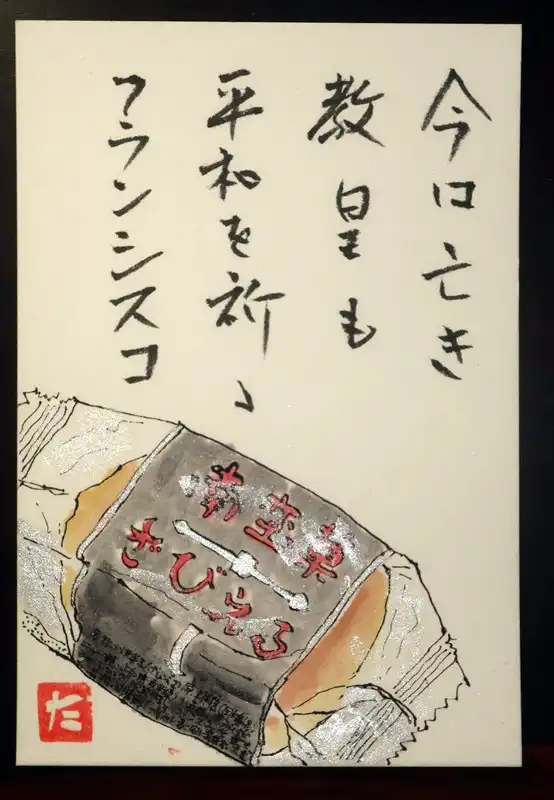 今は亡き
教皇も
平和を祈り
フランシスコ
南蛮菓
ざびえる
た